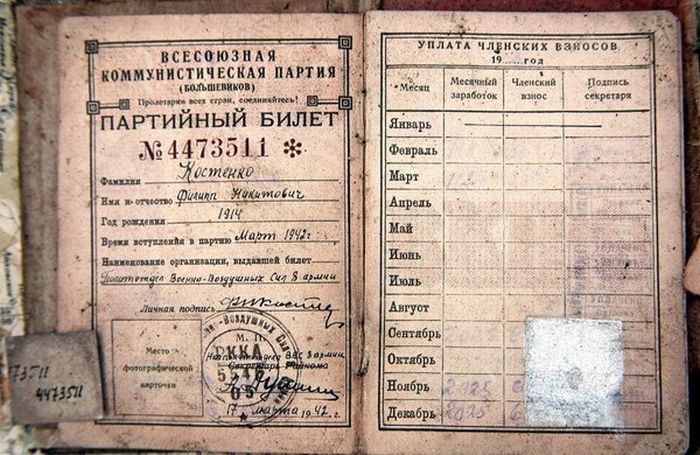 ВСЕСОЮЗНАЯ
КОММУНИСТИЧЕСКАЯ ПАРТИЯ
(БОЛЬШЕВИКОВ)
Пролетарии всех стран, соединяйтесь!
ПАРТИЙНЫЙ БИЛЕТ
№ 4473511 *
Фамилия Костенко
Имя и отчество Филипп Никитович
Год рождения 1914
Время вступления в партию Март 1942 г.
Наименование организации, выдавшей билет
Политотдел Военно-Воздушных Сил 8 армии
Личная подпись
М. П.
ВВС 8 армии
Секретарь Райкома
Место
фотографической
карточки
Воздушных Сил
РККА
17 марта 1942 г.
73511
4473511
УПЛАТА ЧЛЕНСКИХ ВЗНОСОВ
19 год
Месяц Месячный заработок Членский взнос Подпись секретаря
Январь
Февраль
Март
Апрель
Май
Июнь
Июль
Август
Сентябрь
Октябрь
Ноябрь
Декабрь